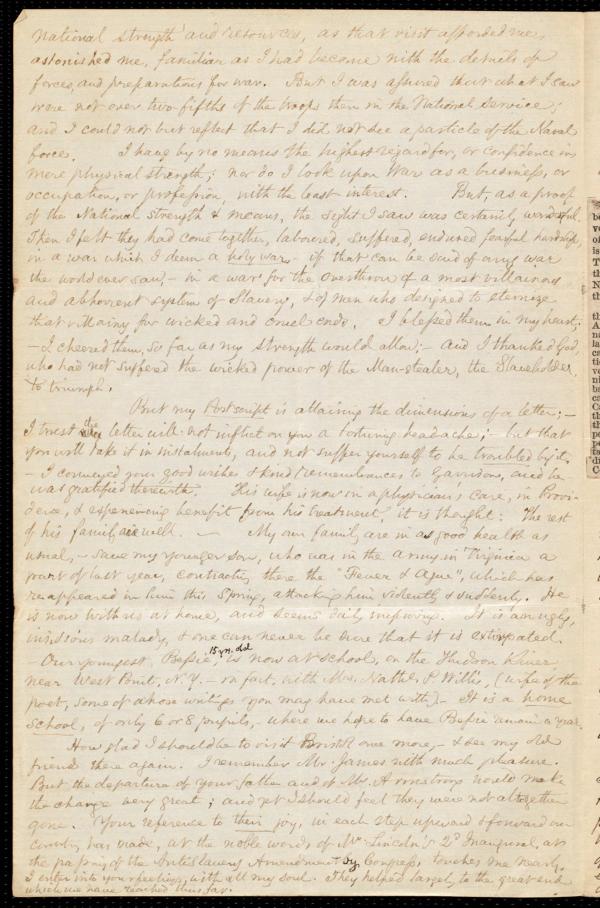 national strength and resources, as that visit afforded me,
astonished me, familiar as I had become with the details of
forces, and preparations for war. But I was assured that what I saw
were not over two-fifths of the troops then in the National service;
and I could not but reflect that I did not see a particle of the Naval
force. I have by no means the highest regard for, or confidence in
mere physical strength; nor do I look upon War as a business, or
occupation, or profession, with the least interest. But, as a proof
of the National strength & means, the sight I saw was certainly wonderful.
Then I felt they had come together, laboured, suffered, endured fearful hardship,
in a war which I deem a holy war – if that can be said of any war
the world ever saw, – in a war for the overthrow of a most villainous
and abhorrent system of Slavery, & of men who designed to eternize
that villainy for wicked and cruel ends. I blessed them in my heart;
– I cheered them, so far as my strength would allow; – and I thanked God,
who had not suffered the wicked power of the Man-stealer, the Slaveholder,
to triumph.
But my Postscript is attaining the dimensions of a letter; –
I trust the letter will not inflict on you a torturing headache; – but that
you will take it in instalments, and not suffer yourself to be troubled by it.
– I conveyed your good wishes & kind remembrances to Garrison, and he
was gratified therewith. His wife is now in a physician's care, in Provi-
dence, & experiencing benefit from his treatment, it is thought. The rest
of his family are well. – My own family are in as good health as
usual, – save my younger son, who was in the army in Virginia a
part of last year, contracting there the "Fever & Ague", which has
reappeared in him this Spring, attacking him violently & suddenly. He
is now with us at home, and seems daily improving. It is an ugly,
insidious malady, & one can never be sure that it is extirpated.
– Our youngest, Bessie, 15 yrs. old is now at school, on the Hudson River,
near West Point, N.Y. – in fact, with Mrs. Nathl. P. Willis, (wife of the
poet, some of whose writings you may have met with). – It is a home
school, of only 6 or 8 pupils, – where we hope to have Bessie remain a year.
How glad I should be to visit Bristol once more, – & see my old
friends there again. I remember Mr. James with much pleasure.
But the departure of your father and of Mr. Armstrong would make
the change very great; and yet I should feel they were not altogether
gone. Your reference to their joy, in each step upward & forward our
country has made, at the noble words of Mr. Lincoln's 2d Inaugural, at
the passing of the Antislavery Amendment by Congress, touches me nearly.
I enter into your feelings, with all my soul. They helped largely to the great end
which we have reached thus far.